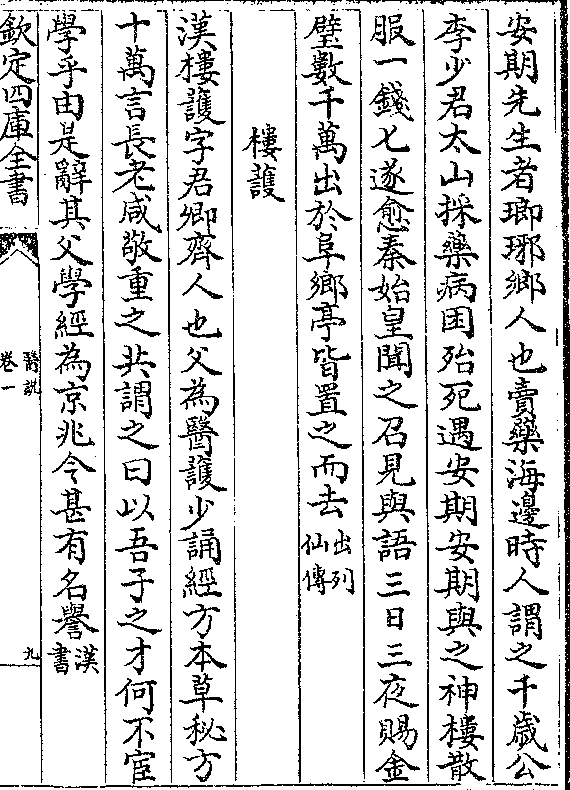 安期先生者瑯琊鄉人也賣藥海邊時人謂之千歲公
李少君太山採藥病困殆死遇安期安期與之神樓散
服一錢匕遂愈秦始皇聞之召見與語三日三夜賜金
璧數千萬出於阜鄉亭皆置之而去出列仙傳
樓護
漢樓護字君卿齊人也父為醫護少誦經方本草秘方
十萬言長老咸敬重之共謂之曰以吾子之才何不宦
學乎由是辭其父學經為京兆令甚有名譽漢書
欽定四庫全書
醫說
卷一
九